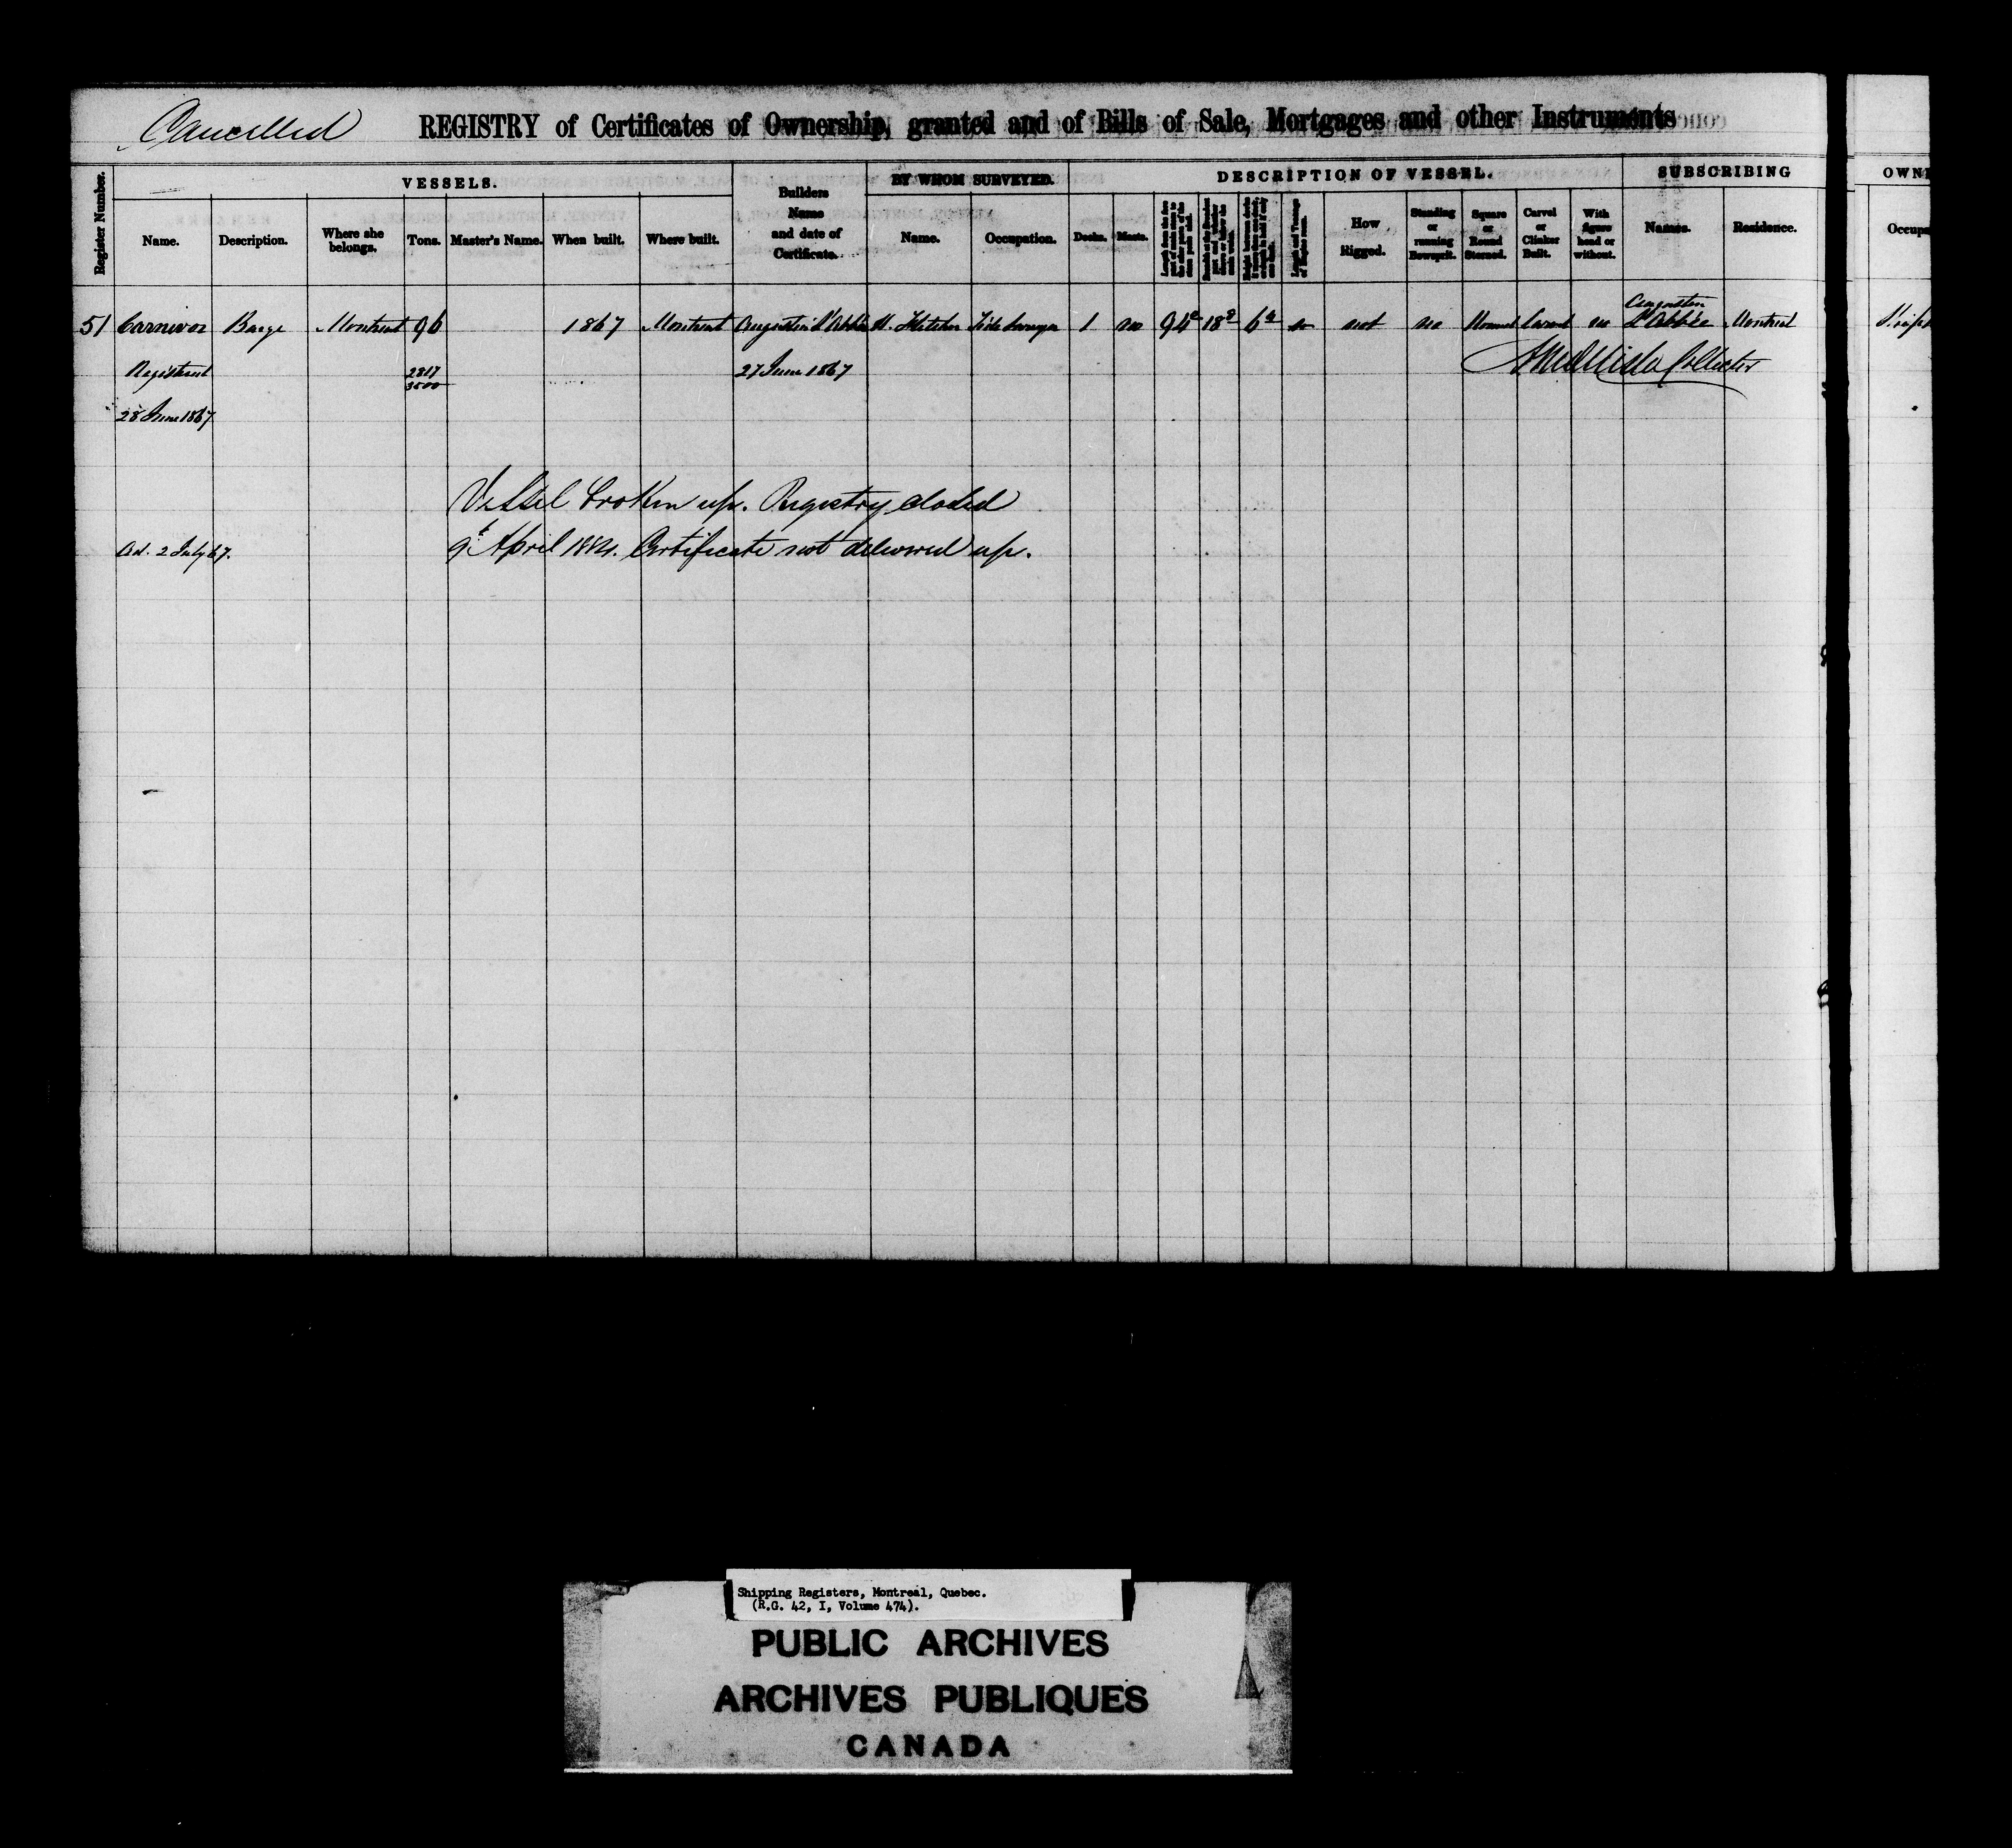 Cancelled REGISTRY of Certificates of Ownership, granted and of Bills of Sale, Mortgages and other Instruments
Register Number.
VESSELS.
Name. Description. Where she belongs. Tons. Master's Name. When built. Where built.
Builders Name and date of Certificate.
BY WHOM SURVEYED.
Name. Occupation.
DESCRIPTION OF VESSEL.
Decks. Masts.
How Rigged.
Standing or running Bowsprit.
Square or Round Sterned.
Carvel or Clinker Built.
With figure head or without.
SUBSCRIBING
Names. Residence.
OWN
Occupa
51 Carnivor Barge Montreal 96 1867 Montreal Augustin L'Abbée H. Fletcher Tide Surveyor 1 no 94 18 6 no not no Round Carvel no Augustin L'Abbée Montreal
Registered 2817 27 June 1867 Collector
3500
28 June 1867
Vessel broken up. Registry closed
Ad. 2 July 67. 9t April 1884. Certificate not delivered up.
Shipping Registers, Montreal, Quebec.
(R.G. 42, I, Volume 474).
PUBLIC ARCHIVES
ARCHIVES PUBLIQUES
CANADA